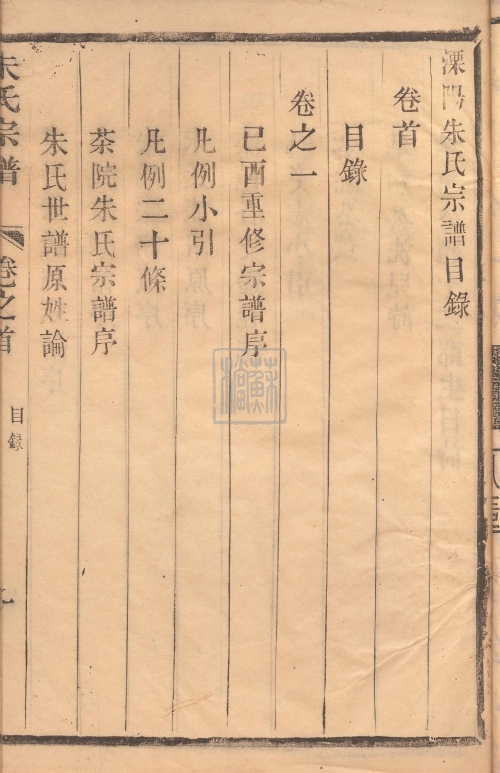 溧陽朱氏宗譜目錄
卷首
目錄
卷之一
己酉重修宗譜序
凡例小引
凡例二十條
茶院朱氏宗譜序
朱氏世譜原姓論
朱氏宗譜
卷之首
目錄